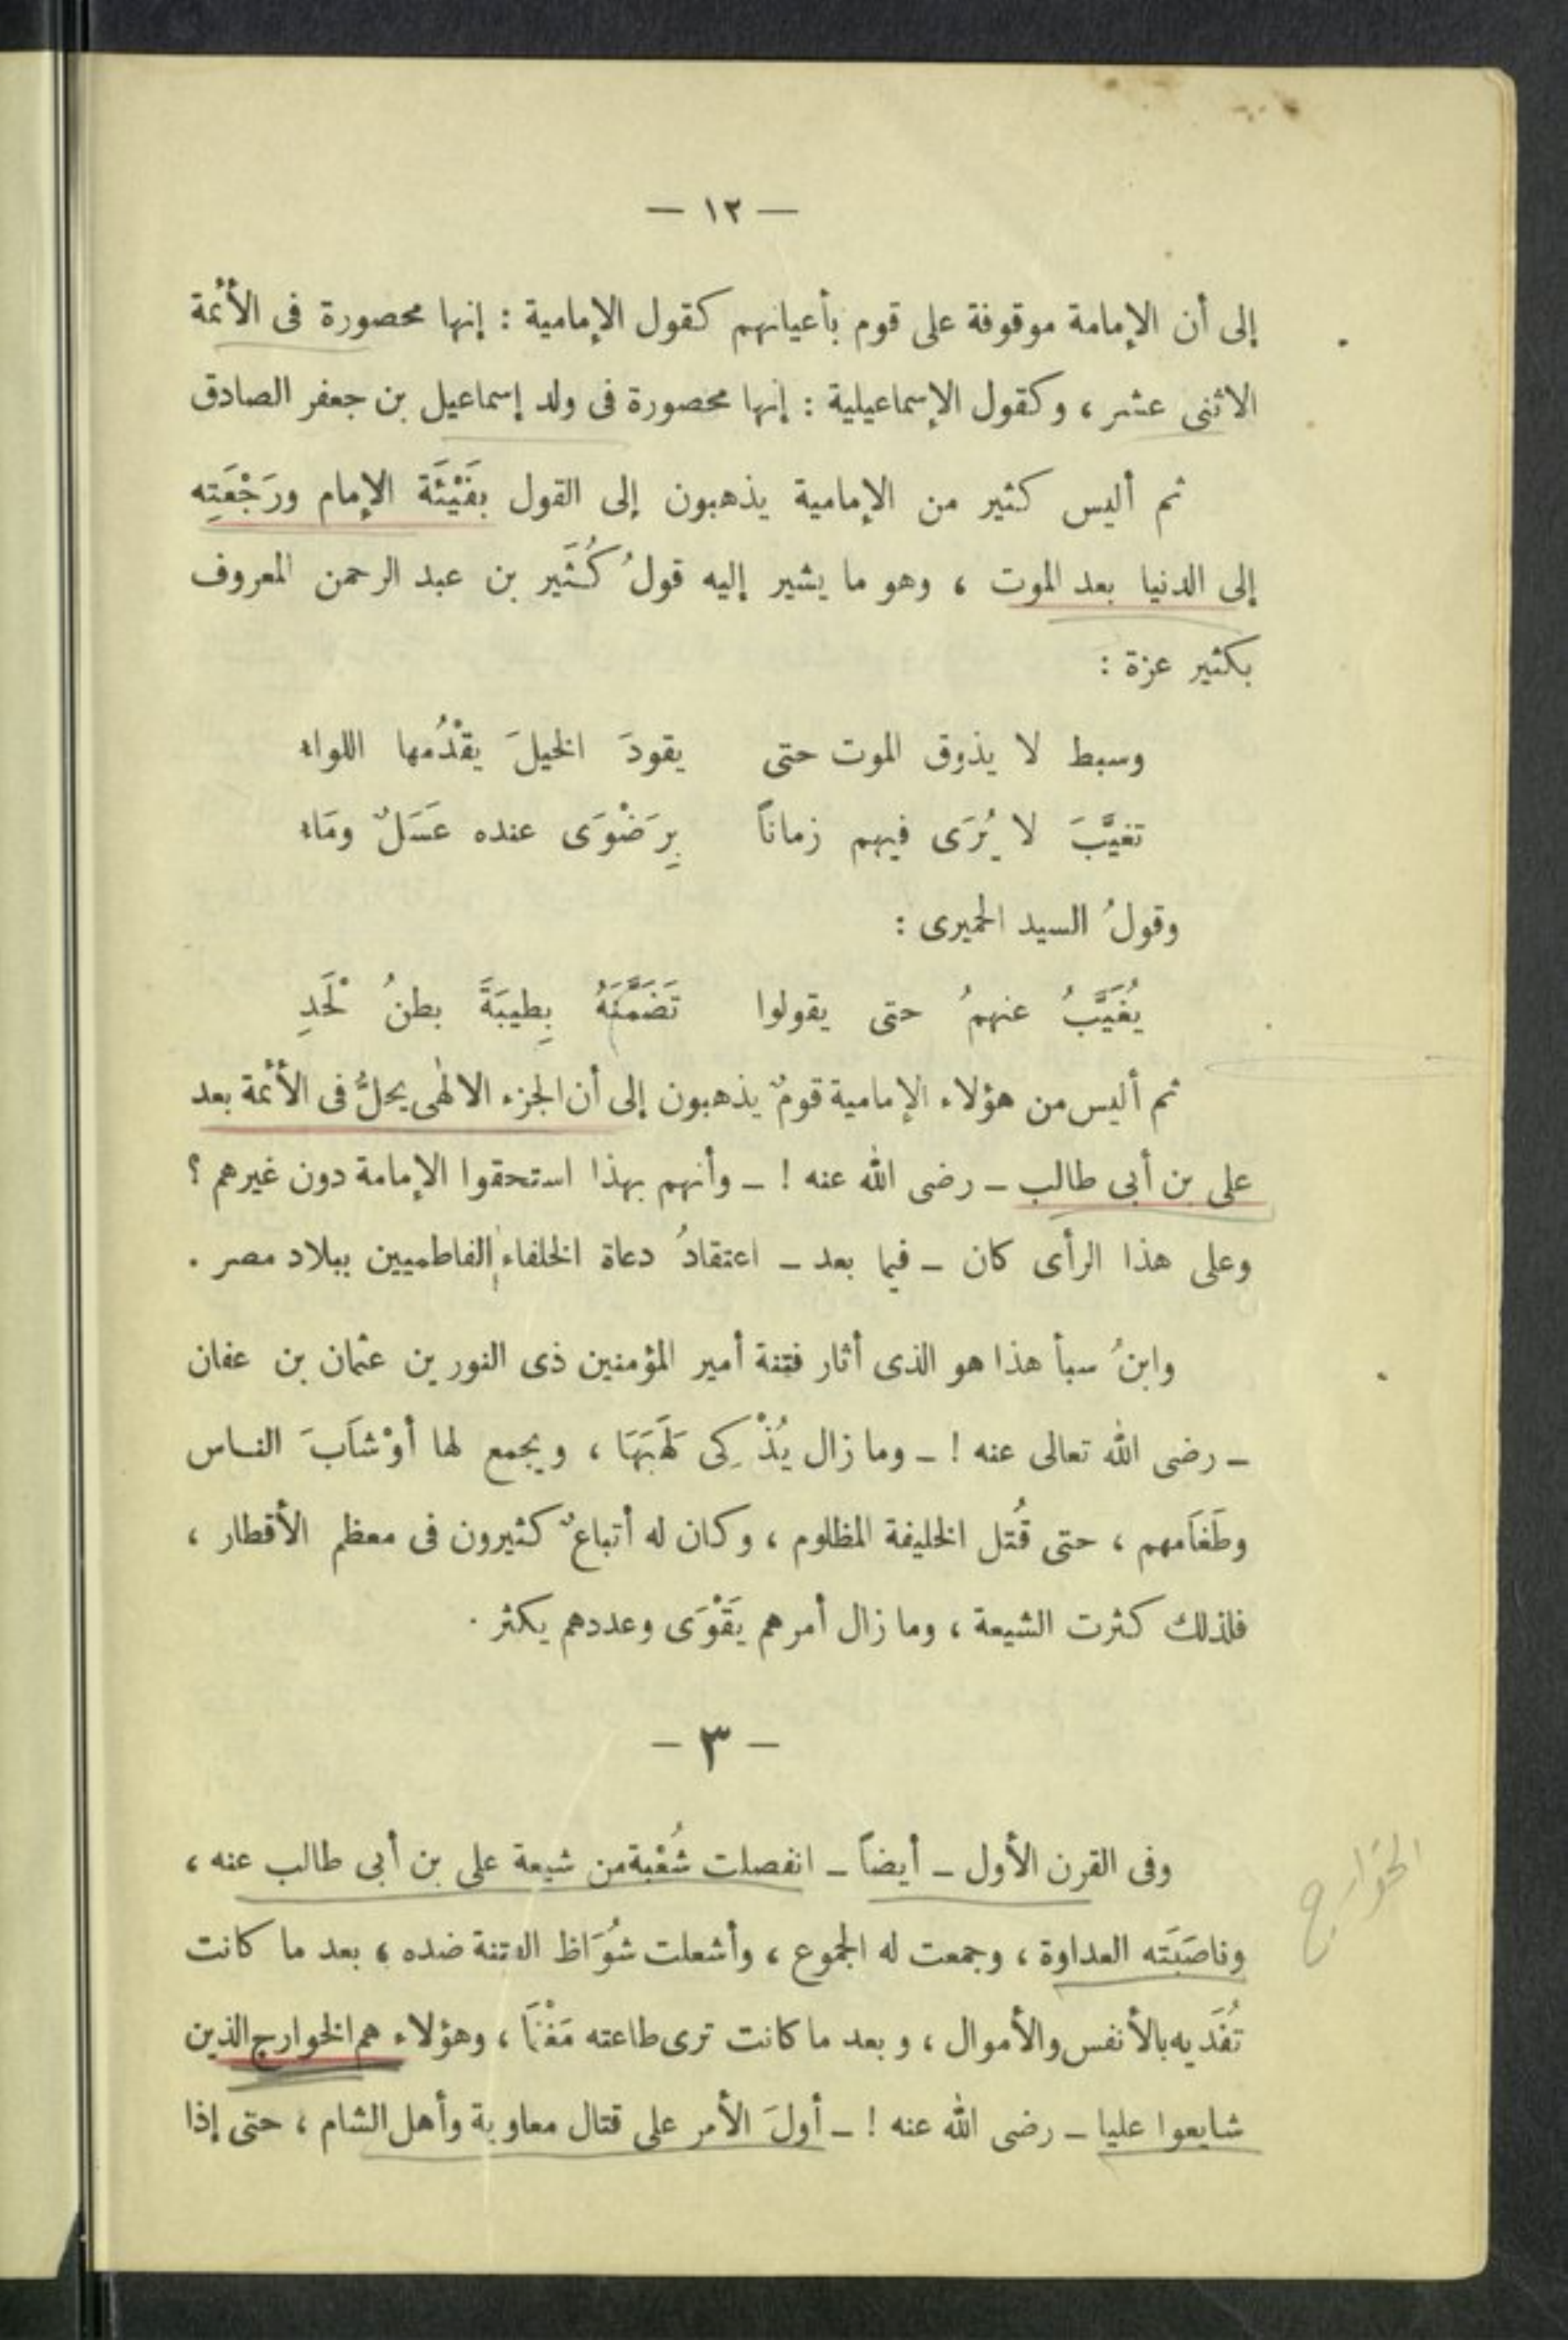 — ١٢ —
إلى أن الإمامة موقوفة على قوم بأعيانهم كقول الإمامية : إنها محصورة فى الأئمة
الاثنى عشر ، وكقول الإسماعيلية : إنها محصورة فى ولد إسماعيل بن جعفر الصادق
ثم أليس كثير من الإمامية يذهبون إلى القول بفَيْئَة الإمام ورَجْعَتِه
إلى الدنيا بعد الموت ، وهو ما يشير إليه قولُ كُثَير بن عبد الرحمن المعروف
بكثير عزة :
وسبط لا يذوق الموت حتى يقودَ الخيلَ يقْدُمها اللواء
تغيَّبَ لا يُرَى فيهم زماناً بِرَضْوَى عنده عَسَلٌ ومَاء
وقولُ السيد الحميرى :
يُغَيَّبُ عنهمُ حتى يقولوا تَضَمَّنَهُ بِطيبَةَ بطنُ لَحْدِ
ثم أليس من هؤلاء الإمامية قومٌ يذهبون إلى أن الجزء الالٰهى يحلُّ فى الأئمة بعد
على بن أبى طالب ــ رضى الله عنه ! ــ وأنهم بهذا استحقوا الإمامة دون غيرهم ؟
وعلى هذا الرأى كان ــ فيما بعد ــ اعتقادُ دعاة الخلفاء الفاطميين ببلاد مصر .
وابنُ سبأ هذا هو الذى أثار فتنة أمير المؤمنين ذى النورين عثمان بن عفان
ــ رضى الله تعالى عنه ! ــ وما زال يُذْكِى لَهَبَهَا ، ويجمع لها أوْشَابَ الناس
وطَغَامهم ، حتى قُتل الخليفة المظلوم ، وكان له أتباعٌ كثيرون فى معظم الأقطار ،
فلذلك كثرت الشيعة ، وما زال أمرهم يَقْوَى وعددهم يكثر .
— ٣ —
وفى القرن الأول ــ أيضاً ــ انفصلت شُعْبة من شيعة على بن أبى طالب عنه ،
وناصَبَته العداوة ، وجمعت له الجموع ، وأشعلت شُوَاظ الفتنة ضده ، بعد ما كانت
تُفَديه بالأنفس والأموال ، وبعد ما كانت ترى طاعته مَغْنَما ، وهؤلاء هم الخوارج الذين
شايعوا عليا ــ رضى الله عنه ! ــ أولَ الأمر على قتال معاوية وأهل الشام ، حتى إذا
الخوارج